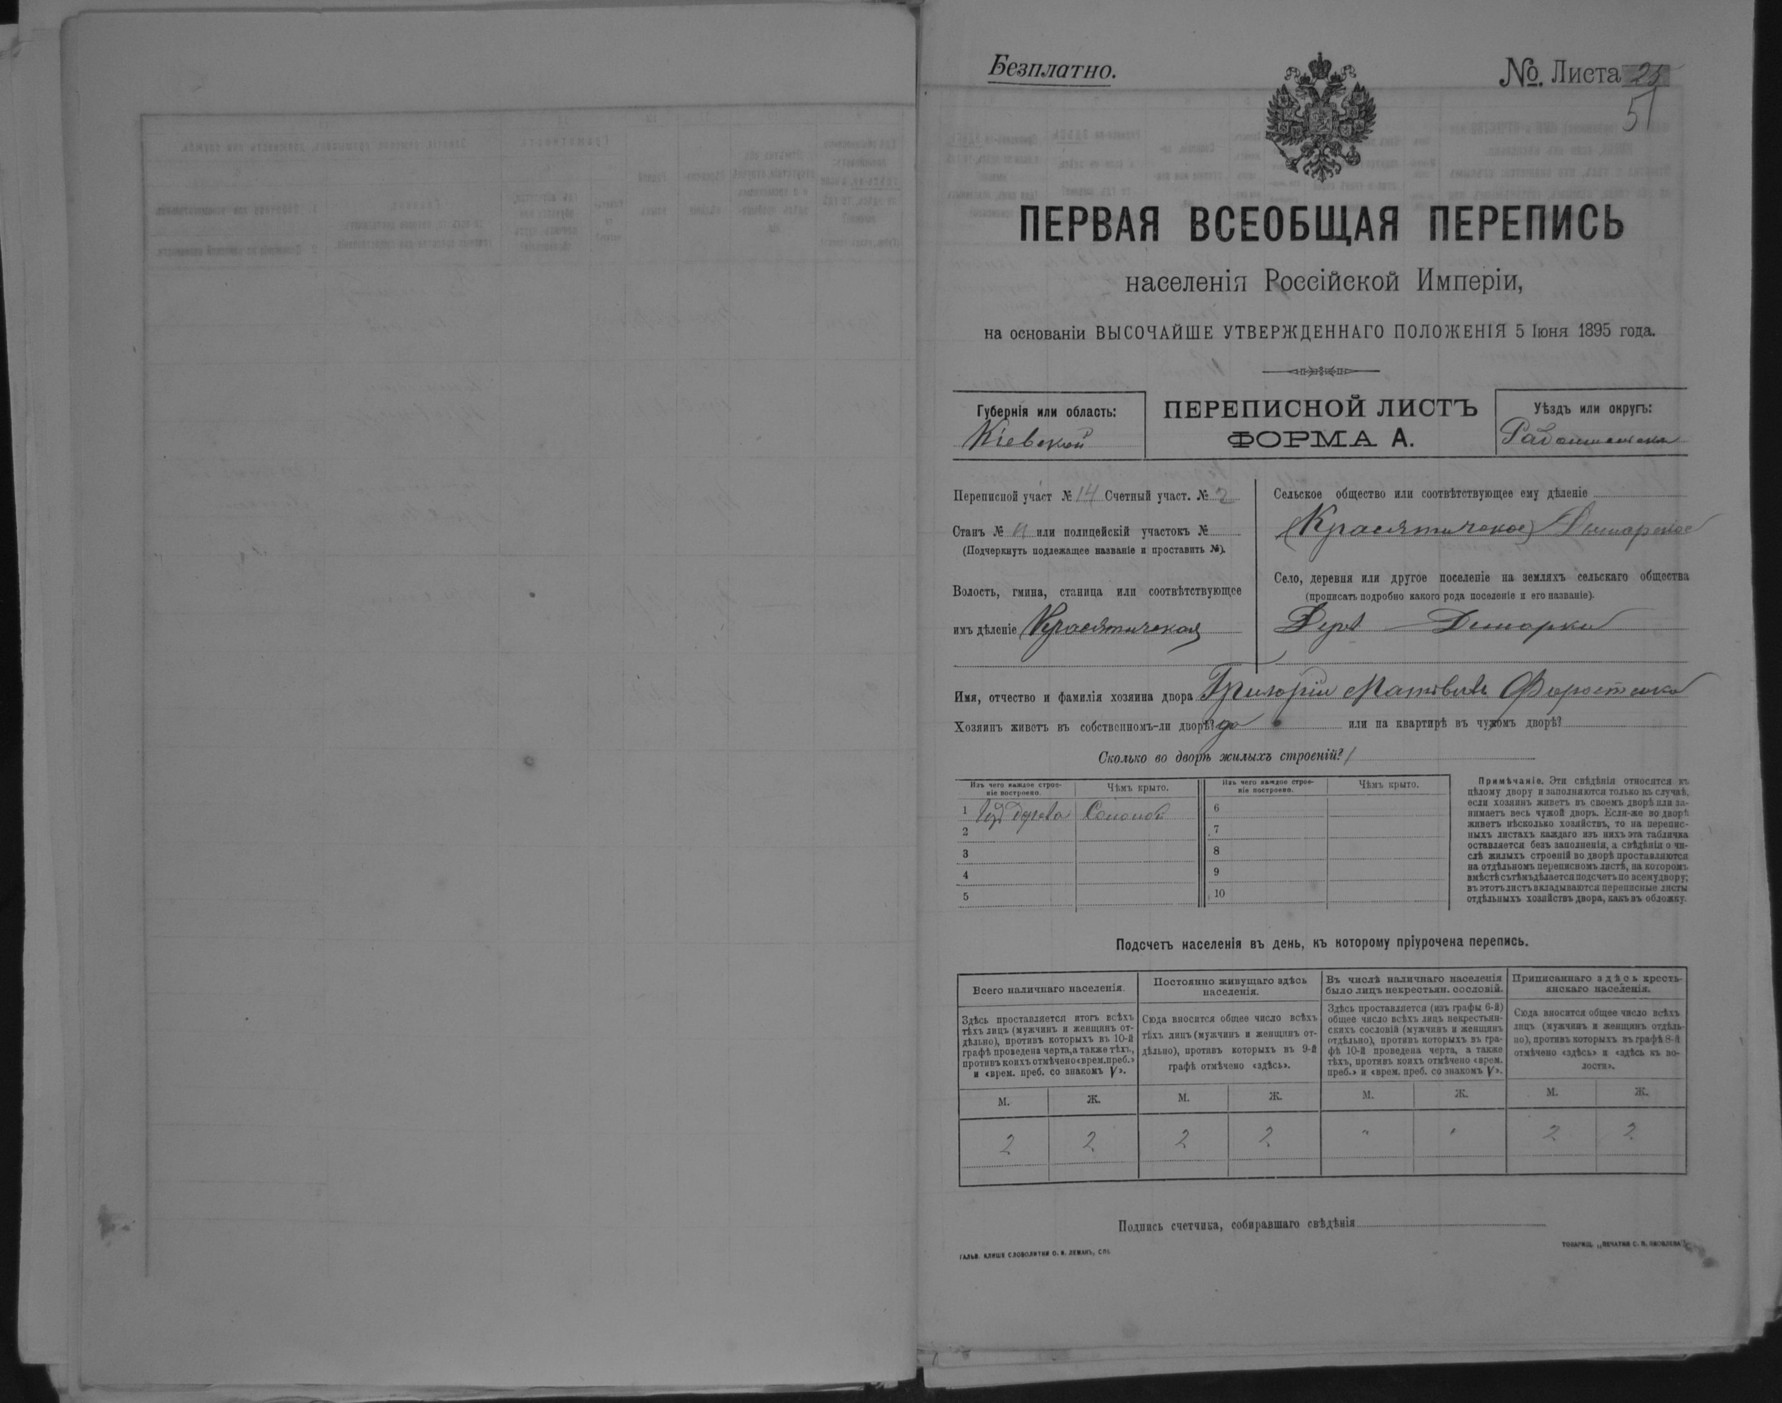 Безплатно.
№. Листа 25
51
ПЕРВАЯ ВСЕОБЩАЯ ПЕРЕПИСЬ
населенія Россійской Имперіи,
на основаніи ВЫСОЧАЙШЕ УТВЕРЖДЕННАГО ПОЛОЖЕНІЯ 5 Іюня 1895 года.
Губернія или область:
Кіевской
ПЕРЕПИСНОЙ ЛИСТЪ
ФОРМА А.
Уѣздъ или округъ:
Переписной участ № 14 Счетный участ. № 2
Станъ № или полицейскій участокъ №
(Подчеркнуть подлежащее названіе и проставить №).
Волость, гмина, станица или соотвѣтствующее
имъ дѣленіе Красятическая
Сельское общество или соотвѣтствующее ему дѣленіе
(Красятическое)
Село, деревня или другое поселеніе на земляхъ сельскаго общества
(прописать подробно какого рода поселеніе и его названіе).
Дерв Димарки
Имя, отчество и фамилія хозяина двора Григорій Матвѣевъ
Хозяинъ живетъ въ собственномъ-ли дворѣ? да или на квартирѣ въ чужомъ дворѣ?
Сколько во дворѣ жилыхъ строеній? 1
Изъ чего каждое строе-
ніе построено.
Чѣмъ крыто.
Изъ чего каждое строе-
ніе построено.
Чѣмъ крыто.
1 Изъ дерева Соломой
2
3
4
5
6
7
8
9
10
Примѣчаніе. Эти свѣдѣнія относятся къ
цѣлому двору и заполняются только въ случаѣ,
если хозяинъ живетъ въ своемъ дворѣ или за-
нимаетъ весь чужой дворъ. Если-же во дворѣ
живетъ нѣсколько хозяйствъ, то на перепис-
ныхъ листахъ каждаго изъ нихъ эта табличка
оставляется безъ заполненія, а свѣдѣнія о чи-
слѣ жилыхъ строеній во дворѣ проставляются
на отдѣльномъ переписномъ листѣ, на которомъ
вмѣстѣ съ тѣмъ дѣлается подсчетъ по всему двору;
въ этотъ листъ вкладываются переписные листы
отдѣльныхъ хозяйствъ двора, какъ въ обложку.
Подсчетъ населенія въ день, къ которому пріурочена перепись.
Всего наличнаго населенія.
Здѣсь проставляется итогъ всѣхъ
тѣхъ лицъ (мужчинъ и женщинъ от-
дѣльно), противъ которыхъ въ 10-й
графѣ проведена черта, а также тѣхъ,
противъ коихъ отмѣчено «врем. преб.»
и «врем. преб. со знакомъ V».
Постоянно живущаго здѣсь
населенія.
Сюда вносится общее число всѣхъ
тѣхъ лицъ (мужчинъ и женщинъ от-
дѣльно), противъ которыхъ въ 9-й
графѣ отмѣчено «здѣсь».
Въ числѣ наличнаго населенія
было лицъ некрестьян. сословій.
Здѣсь проставляется (изъ графы 6-й)
общее число всѣхъ лицъ некрестьян-
скихъ сословій (мужчинъ и женщинъ
отдѣльно), противъ которыхъ въ гра-
фѣ 10-й проведена черта, а также
тѣхъ, противъ коихъ отмѣчено «врем.
преб.» и «врем. преб. со знакомъ V».
Приписаннаго здѣсь кресть-
янскаго населенія.
Сюда вносится общее число всѣхъ
лицъ (мужчинъ и женщинъ отдѣль-
но), противъ которыхъ въ графѣ 8-й
отмѣчено «здѣсь» и «здѣсь къ во-
лости».
М. Ж. М. Ж. М. Ж. М. Ж.
2 2 2 2 " " 2 2
Подпись счетчика, собиравшаго свѣдѣнія
ГАЛЬВ. КЛИШЕ СЛОВОЛИТНИ О. И. ЛЕМАНЪ, СПБ.
ТОВАРИЩ. „ПЕЧАТНЯ С. П. ЯКОВЛЕВА".